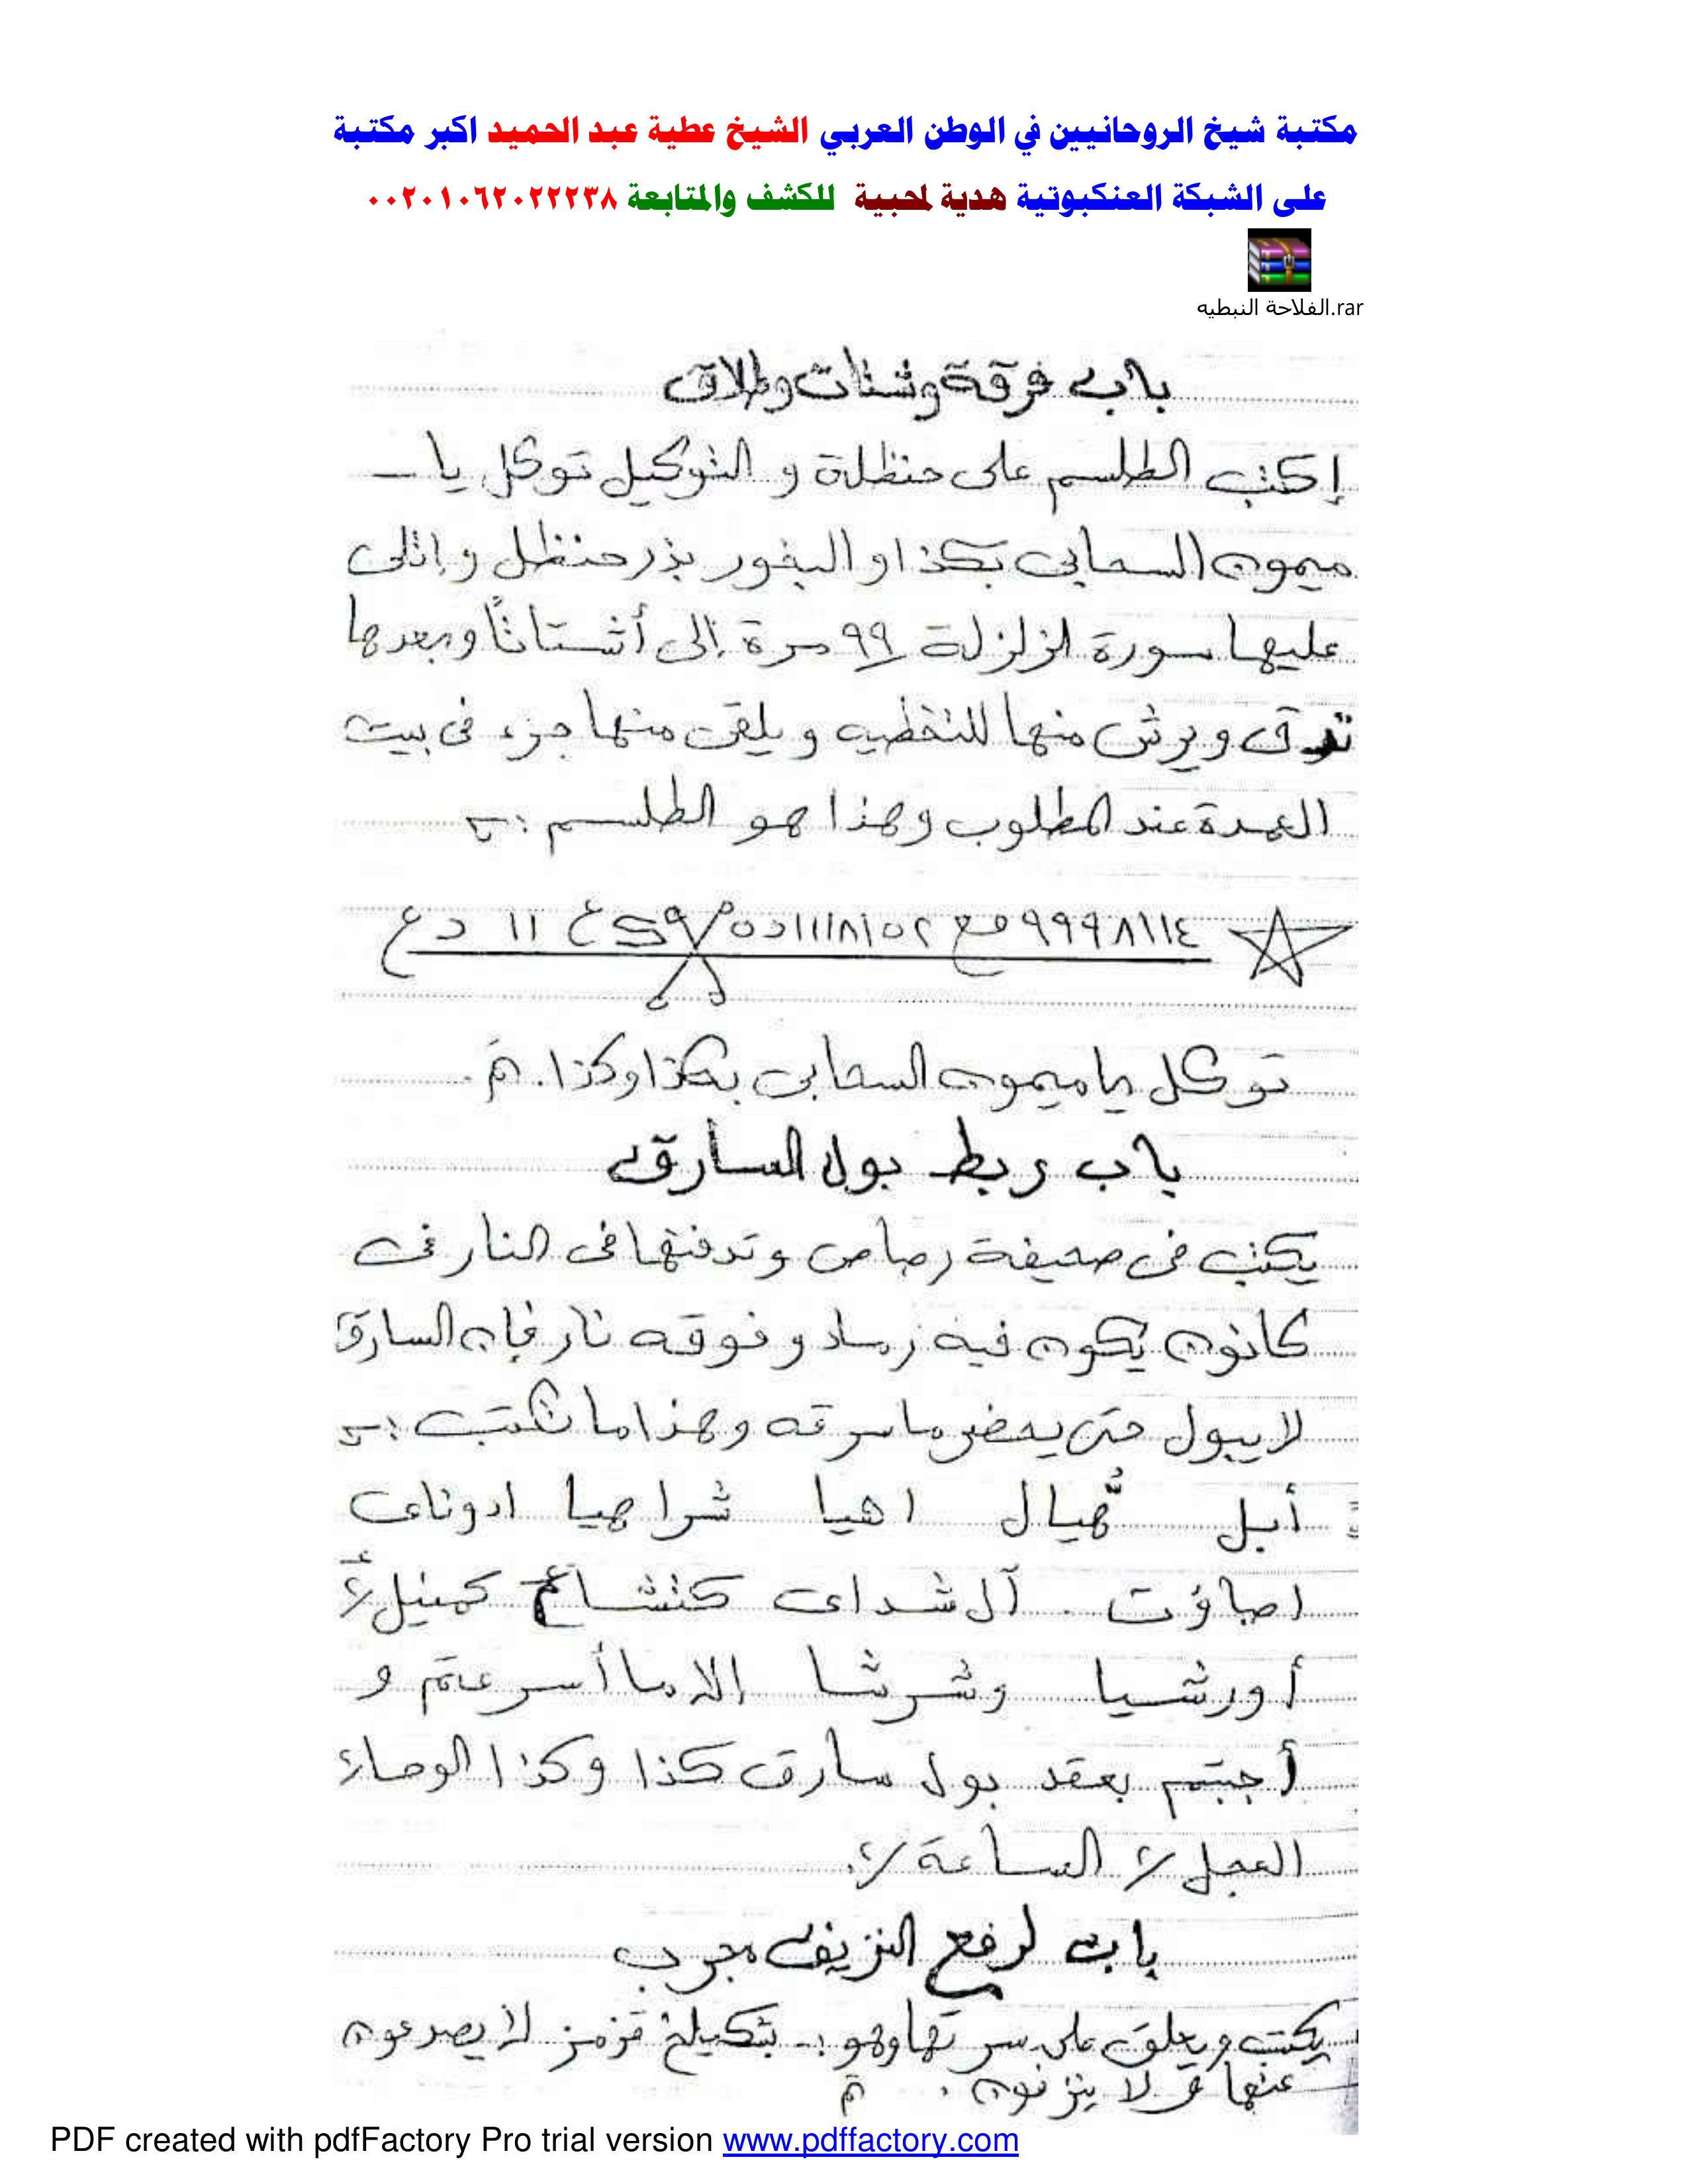 مكتبة شيخ الروحانيين في الوطن العربي الشيخ عطية عبد الحميد اكبر مكتبة
على الشبكة العنكبوتية هدية لمحبية للكشف والمتابعة ٠٠٢٠١٠٦٢٠٢٢٢٣٨
الفلاحة النبطيه.rar
باب فرقة وشتات وطلاق
إكتب الطلسم على حنظلة و التوكيل توكل يا
ميمون السحابى بكذا و البخور بذر حنظل و إتلى
عليها سورة الزلزلة ٩٩ مرة إلى أشتاتاً وبعدها
تدق ويرش منها للتخطيه و يلقى منها جزء فى بيت
العمدة عند المطلوب وهذا هو الطلسم :-
٩٩٩٨١١٤
توكل يا ميمون السحابى بكذا وكذا . تم .
باب ربط بول السارق
يكتب فى صحيفة رصاص وتدفنها فى النار فى
كانون يكون فيه رماد و فوقه نار فإن السارق
لا يبول حتى يحضر ما سرقه وهذا ما تكتب :-
أبل هيال اهيا شراهيا ادوناى
اصباؤت . آل شداى
أورشيا وشرشا إلا ما أسرعتم و
أجبتم بعقد بول سارق كذا وكذا الوحا
العجل الساعة
باب لرفع النزيف مجرب
يكتب ويعلق على سرتها وهو :- لا يصدعون
عنها و لا ينزفون . تم
PDF created with pdfFactory Pro trial version www.pdffactory.com